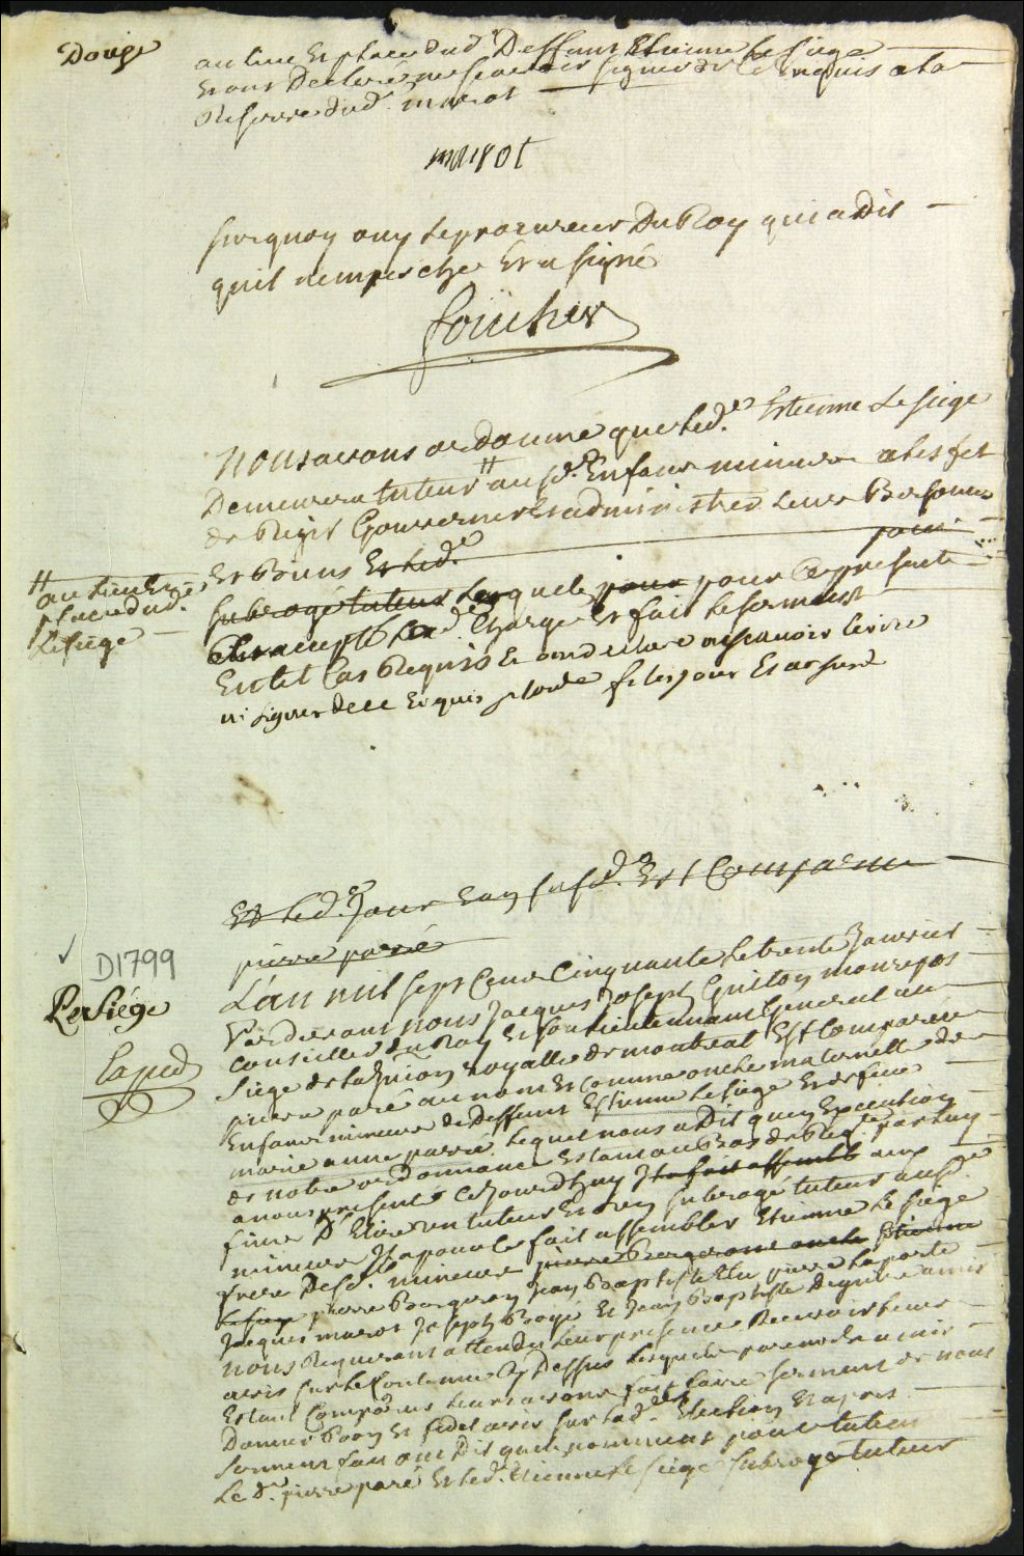 Douge
au lieu Et place dud.t Deffunt Etienne Le Siege
Et ont Declaré ne scavoir signer de Ce Enquis a la
Reserve dud. marot
marot
Surquoy ouy Le procureur Du Roy qui a Dit
quil nempesche Et a signé
foucher
Nous avons ordonné que Led. Estienne Le Siege
Demeurera tuteur # aux sd. Enfans mineurs a les fet
de Regir Gouverner Et administrer Leurs Personnes
Et Biens Et Led.
# au lieu Et
place dud.
Le siege
pour
subrogé tuteur Lesquels pour pour Ce present
Et accepté La d. Charge Et fait Le serment
En tel Cas Requis Et ont declaré ne scavoir Ecrire
ni signer de ce Enquis
Et Led. Jour Et an susd. Est Comparu
pierre parré
D1799
Le Siége
L'an mil sept Cent Cinquante Le trente Janvier
pardevant nous Jacques Joseph Guiton monrepos
Conseiller du Roy Et son Lieutennant General au
siége de La Jurisdiction royalle de montreal Est Comparu
pierre paré au nom Et Comme oncle maternelle des
Enfans mineurs de Deffunt Estienne Le Siege Et de feüe
marie anne parré Lequel nous a Dit quen Execution
de notre ordonnance Estant au Bas de Req.te par luy
a nous presentée Cejourdhuy Il a fait assemblé aux
fins D'Elire un tuteur Et un subrogé tuteur ausd.
mineurs Il a pour Ce fait assembler Etienne Le Siege
frere Desd. mineurs pierre Bergeron oncle Etienne
Le siege pierre Bergeron Jean Baptiste Elie pierre Laporte
Jacques marot Joseph Et Jean Baptiste amis
nous Requerant attendu Leur presence Recevoir Leurs
avis sur Le Contenu Cy Dessus Lesquels parens Et amis
Estant Comparus Leur avons fait faire serment de nous
Donner Bon Et fidel avis sur Lad. Election Et apres
serment fait ont Dit quils nomment pour tuteur
Le d. pierre paré Et Led. Etienne Le siege subrogé tuteur